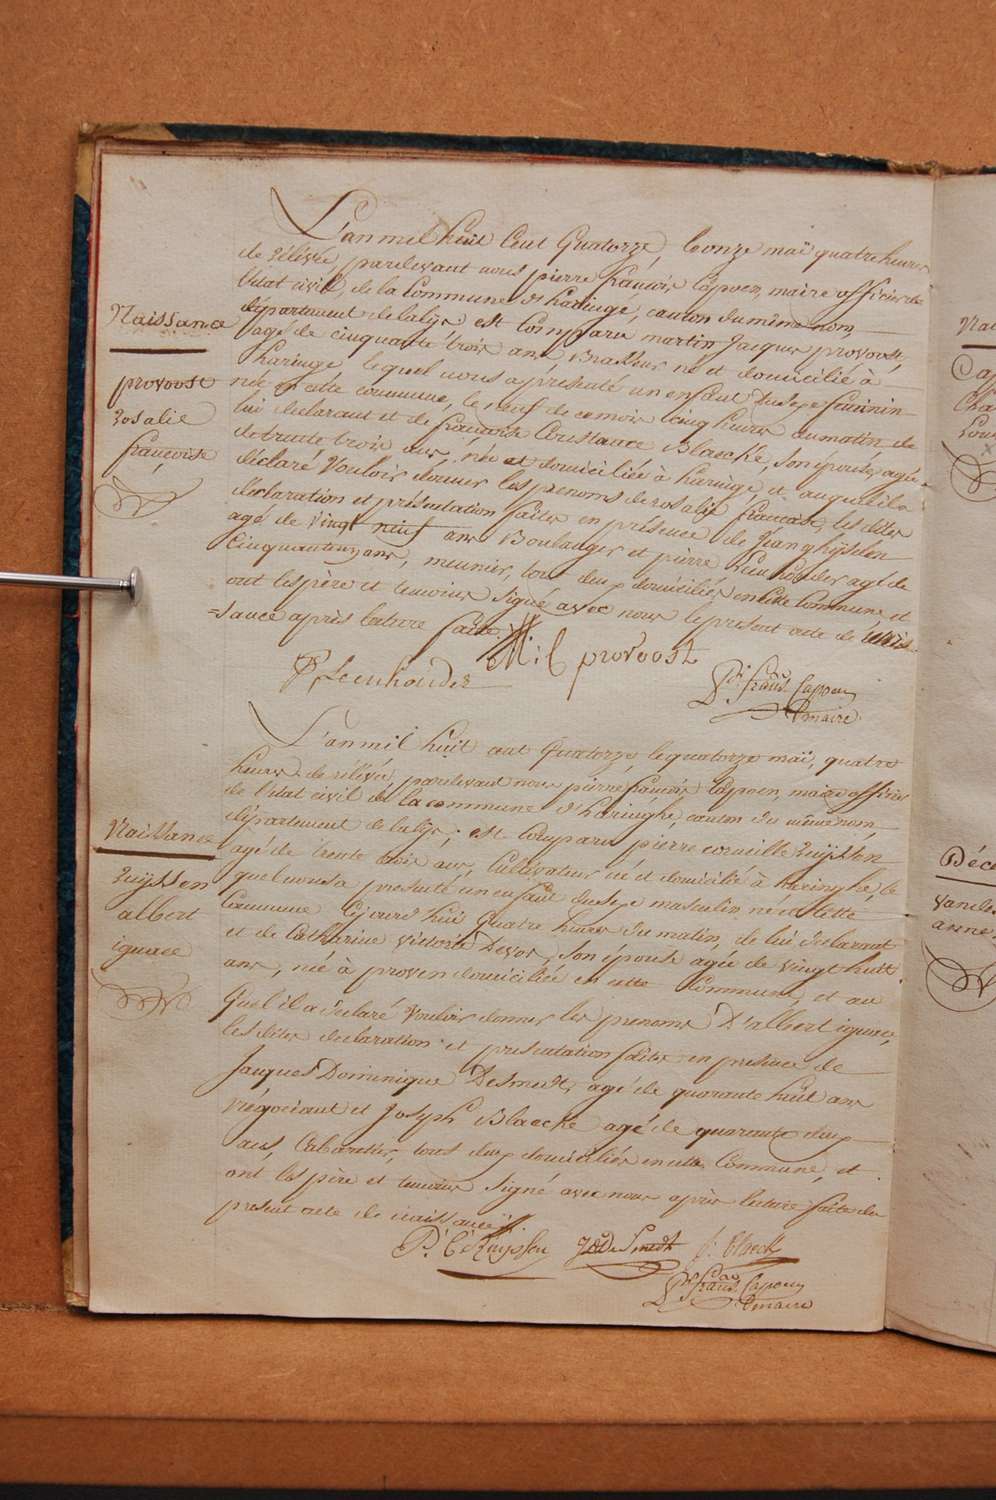 L'an mil huit Cent Quatorze, le onze maï quatre heures
de rélévée, pardevant nous pierre françois Capoen, maire officier de
l'état civil, de la Commune d'haringé, canton du même nom,
département de la lijs est Comparu martin Jacques provoost,
agé de cinquante trois ans Brasseur né et domicilié à
haringé lequel nous a présenté un enfant du sexe féminin
née en cette commune, le neuf de ce mois cinq heures du matin de
lui declarant et de françoise Constance Blaecke, son épouse, agée
de trente trois ans, née et domiciliée à haringé, et auquel il a
déclaré Vouloir donner les prenoms de rosalie françoise, les dites
declaration et présentation faites en présence de Jean ghijselen
agé de vingt neuf ans Boulanger et pierre Leenhouder agé de
Cinquante ans, meunier, tous deux domiciliés en cette Commune et
ont les père et temoins signé avec nous le present acte de nais
=sance après lecture faite.
Naissance
provoost
rosalie
françoise
M i L provoost
P Leenhouder
Pr. frans. Capoen
maire
L'an mil huit cent Quatorze, le quatorze maï, quatre
heures de rélévée, pardevant nous pierre françois Capoen, maire officier
de l'état civil de la commune d'haringhe, canton du même nom,
département de la lijs; est Comparu pierre corneille Ruijssen
agé de trente trois ans, Cultivateur né et domicilié à haringhe, le
quel nous a presenté un enfant du sexe masculin, né en cette
Commune Cejourd'huï quatre heures du matin, de lui déclarant
et de Catharine victoire Devos, son épouse agée de vingt huit
ans, née à proven domiciliée en cette Commune, et au
Quel il a déclaré Vouloir donner les prenoms D'albert ignace,
les dites declaration et presentation faites en presence de
Jacques Dominique Desmedt, agé de quarante huit ans
négociant et Joseph Blaecke agé de quarante deux
ans, Cabaretier, tous deux domiciliés en cette Commune, et
ont les père et temoins signé avec nous après lecture faite du
présent acte de naissance.
Naissance
Ruijssen
albert
ignace
P. C. Ruijssen
J D De Smedt
J: Blaecke
Pr. frans. Capoen
maire
Déc
anne